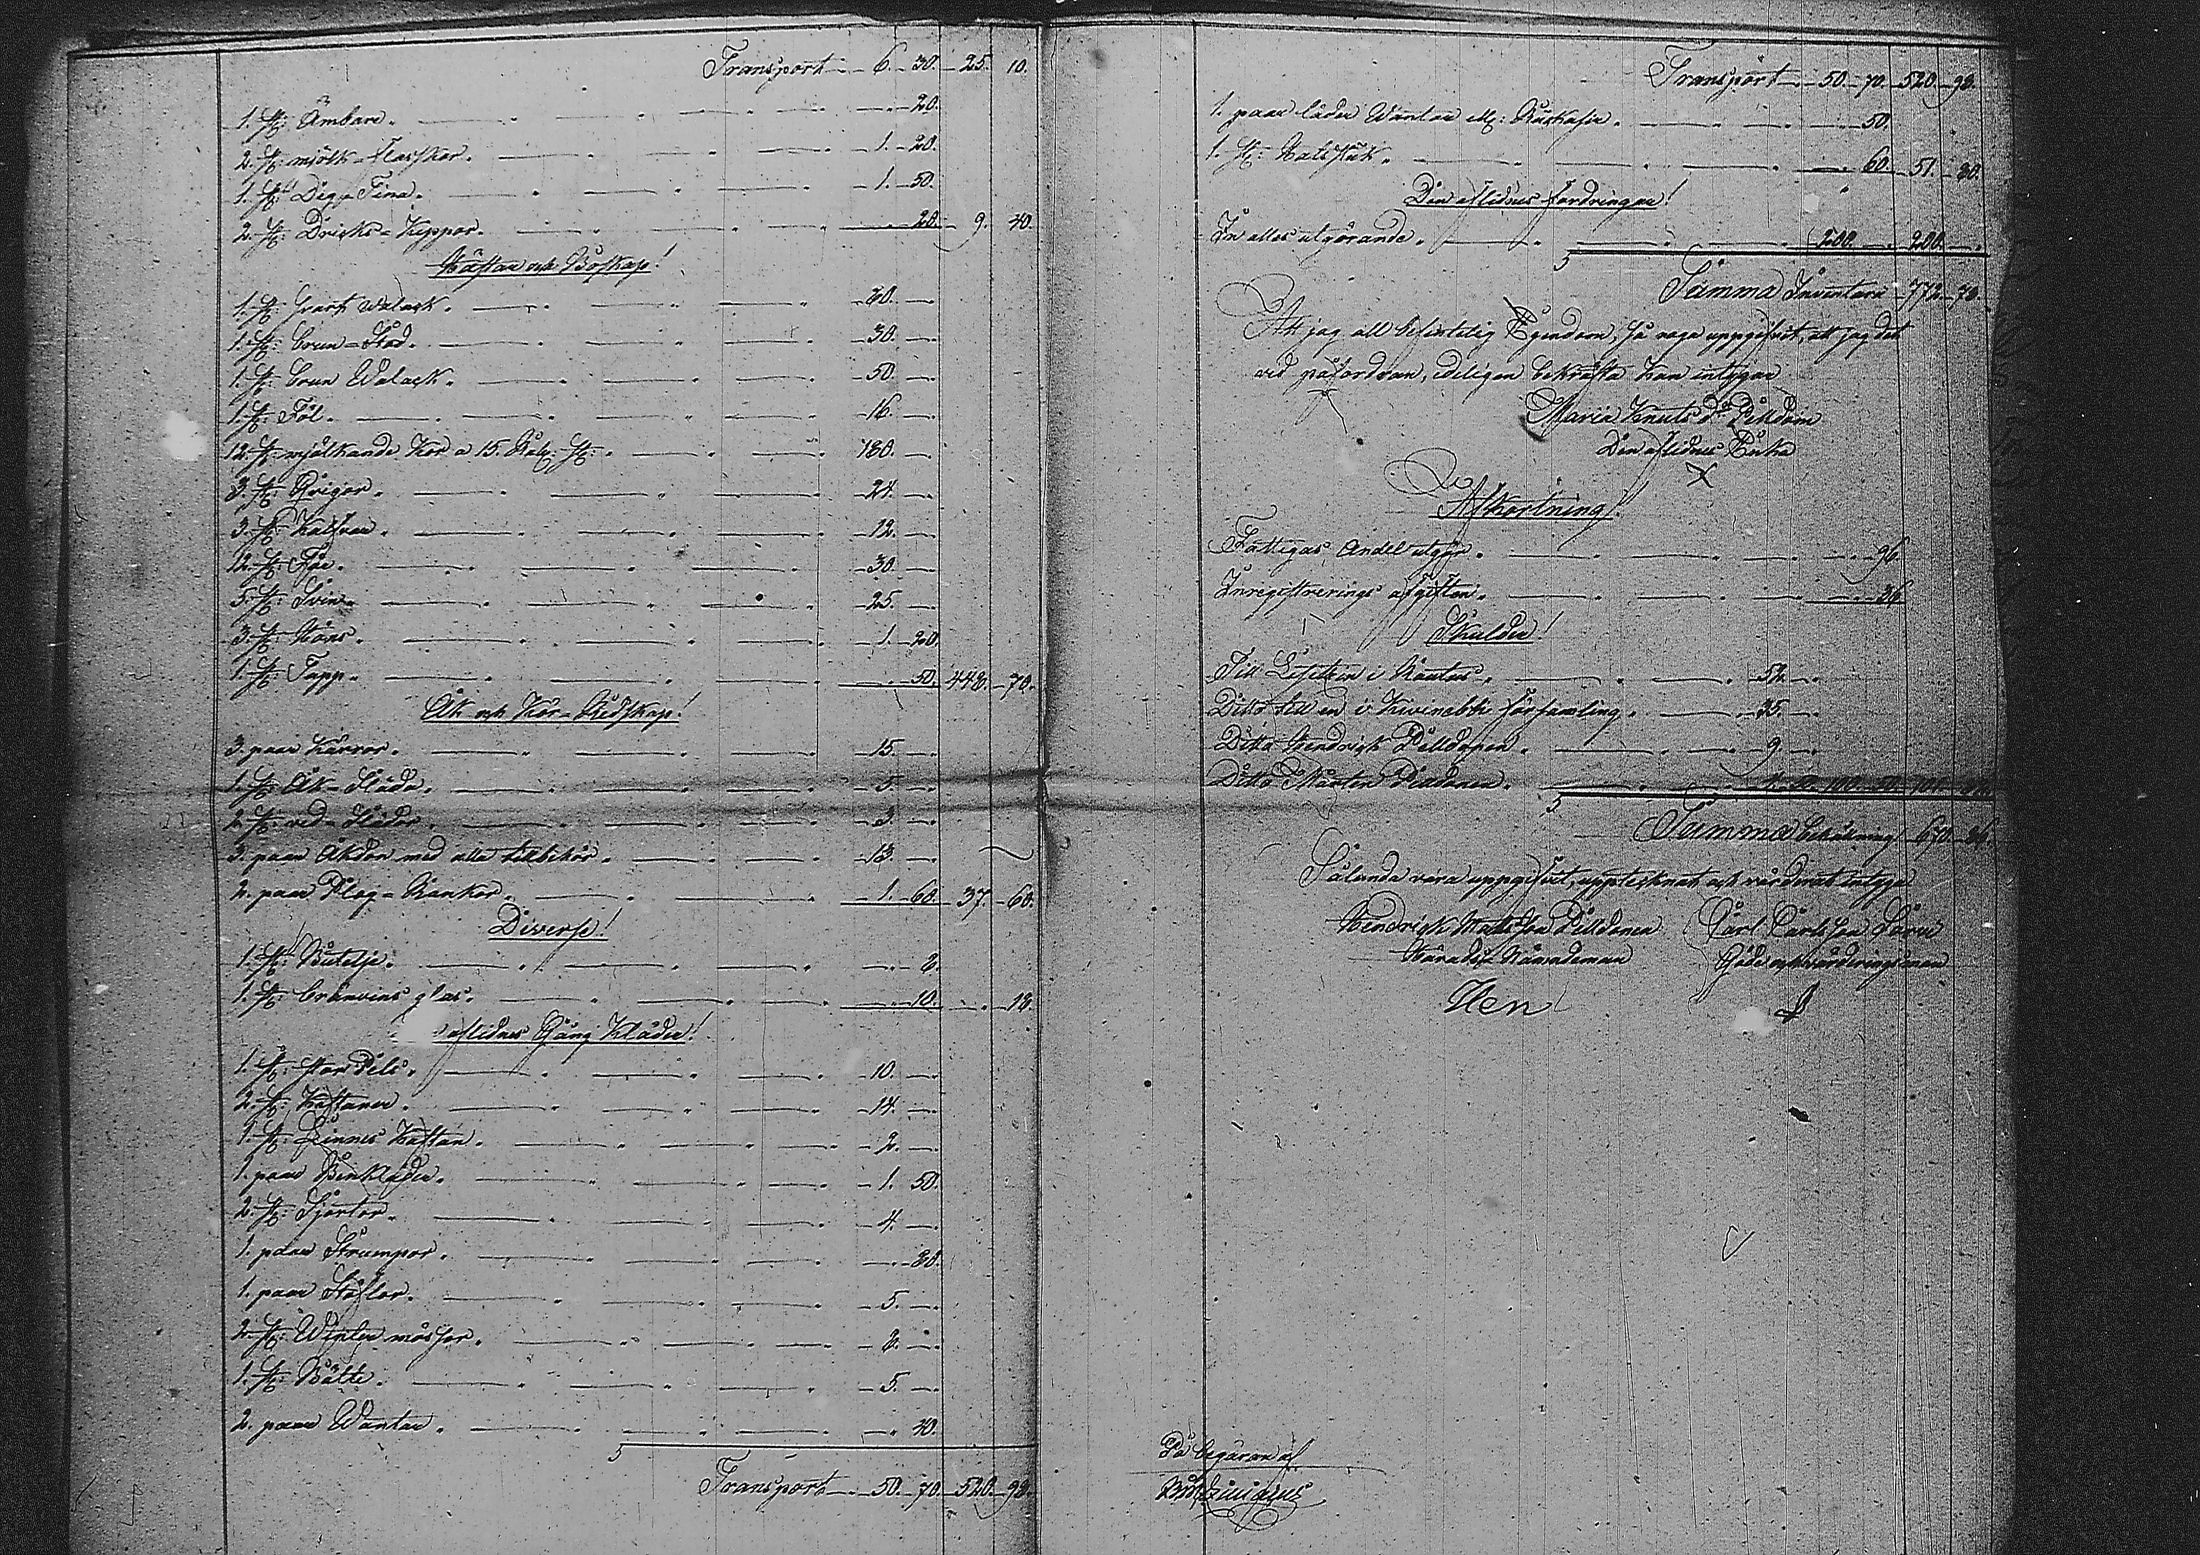 Transport 6. 30. 25. 10.
1. st: Ämbare. 20.
2. st: mjölk-Flaskor. 1. 20.
1. st: Deg-Tina. 1. 50.
2. st: Dricks-Kippor. 20. 9. 40.
Hästar och Boskap!
1. st: svart Walack. 30.
1. st: brun-Stod. 30.
1. st: brun Walack. 50.
1. st: Föl. 16.
12. st: mjölkande Kor a 15. Rub: st: 180.
3. st: Qvigor. 24.
3. st: Kalfvar. 12.
12. st: Får. 30.
5. st: Svin. 25.
3. st: Höns. 1. 20.
1. st: Tupp. 50. 448. 70.
Åk och Kör-Redskap!
3. paar Kärror. 15.
1. st: Åk-Släda. 5.
2. st: ved-Slädor. 3.
3. paar Åkdon med alla tillbehör. 13.
2. paar Plog-Rankor. 1. 60. 37. 60.
Diverse!
1. st: Butelje. 8.
1. st: bränvins glas. 10. 18.
aflidnes Gång Kläder!
1. st: stor Pels. 10.
2. st: Kaftaner. 14.
1. st: Linnes Kaftan. 2.
1. paar Benkläder. 1. 50.
2. st: Sjortor. 4.
1. paar Strumpor. 80.
1. paar Stöflor. 5.
2. st: Winter mössor. 8.
1. st: Bälte. 5.
2. paar Wantar. 40.
Transport 50. 70. 520. 98.
Transport 50. 70. 520. 98.
1. paar läder Wantar 50.
1. st: Halsduk. 60. 51. 80.
Den aflidnes fordringar!
In alles utgörande. 200. 200.
Summa Inventara 772. 78.
Att jag all befintelig Egendom, så noga uppgifvit, att jag det
vid påfordran, edeligen bekräfta kan intygar
Maria Knuts Dr Pilldoin
Den aflidnes Enka
Afkortning!
Fattigas Andel utgör. 96
Inregistrerings afgiften. 36
Skulder!
Till i Rantas. 52.
Ditto till en i Kivinebbi församling. 35.
Ditto Hendrick Pilldonen. 9.
Ditto Mårten Pilldonen.
Summa behållning 670. 86.
Sålunda vara uppgifvit, upptecknat och värderat intyga
Hendrick Mattsson Pilldonen Carl Carlsson Särvi
Härads Nämndeman Gode och värderingsman
Hen
På begäran af